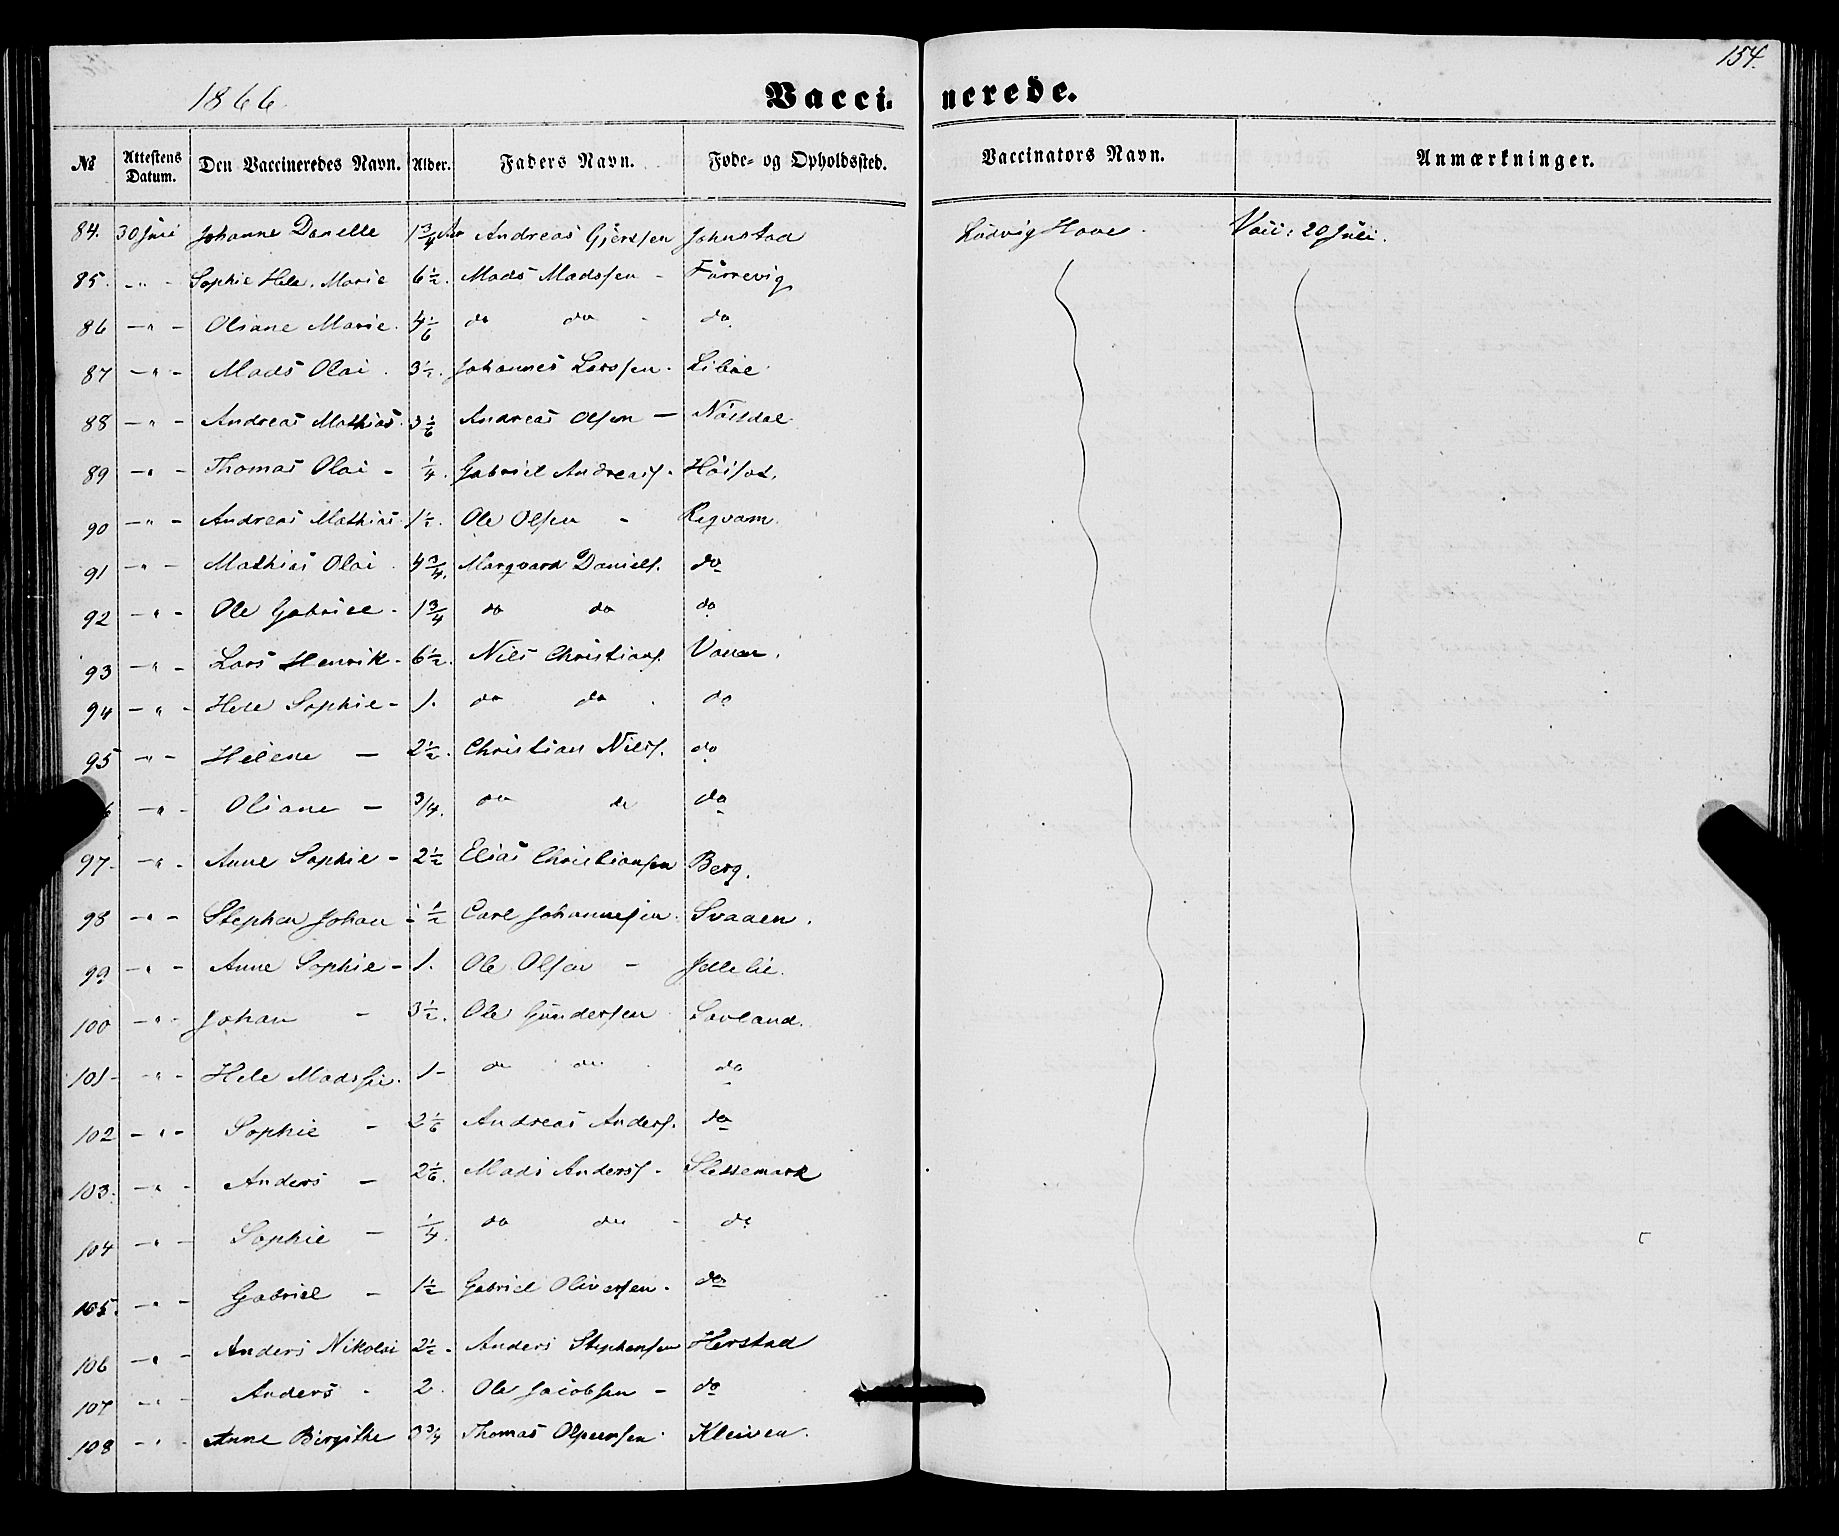 154.
1866.
Vaccinerede.
№ Attestens Datum. Den Vaccineredes Navn. Alder. Faders Navn. Føde- og Opholdssted. Vaccinators Navn. Anmærkninger.
84. 30 Juni Johanne Danelle 1¾ Aar Andreas Gjertsen Johnstad Ludvig Hove. Vacc: 20 Juli.
85. -"- Sophie Hele. Marie 6½. Mads Madssen - Furrevig
86 -"- Oliane Marie. 4⅙ do do - do
87 -"- Mads Olai. 3½. Johannes Larssen. Libae
88 -"- Andreas Mathias. 3⅙ Andreas Olsen - Nøssdal
89 -"- Thomas Olai - ¼. Gabriel Andreass. Høisæt.
90 -"- Andreas Mathias. 1½. Ole Olsen - Reqvam.
91 -"- Mathias Olai. 4¾. Marqvard Daniels. do
92 -"- Ole Gabriel - 1¾ do do do
93 -"- Lars Henrik - 6½. Nils Christians. Vaaen.
94 -"- Hele Sophie - 1. do do . do
95 -"- Helene - 2½. Christian Niels. do
-"- Oliane - 3/4. do do do
97. -"- Anne Sophie - 2½ Elias Christiansen Berg.
98 -"- Stephen Johan - ½ Carl Johannesen. Svaaen.
99 -"- Anne Sophie - 1. Ole Olsen - Jellelie.
100 -"- Johan - 3½. Ole Gundersen Sævland.
101 - -"- Hele Madssie. 1 - do do . do
102 -"- Sophie - 2⅙ Andreas Anders. do
103. -"- Anders - 2⅙. Mads Anderss - Slettemark
104 -"- Sophie - ¼. do do - do
105. -"- Gabriel - 1½ Gabriel Oliversen. do
106 -"- Anders Nikolai 2½ - Anders Stephensen Herstad
107 -"- Anders - 2 Ole Jacobsen - do
108 -"- Anne Birgithe 3 3/4 Thomas Espensen. Kleiven.